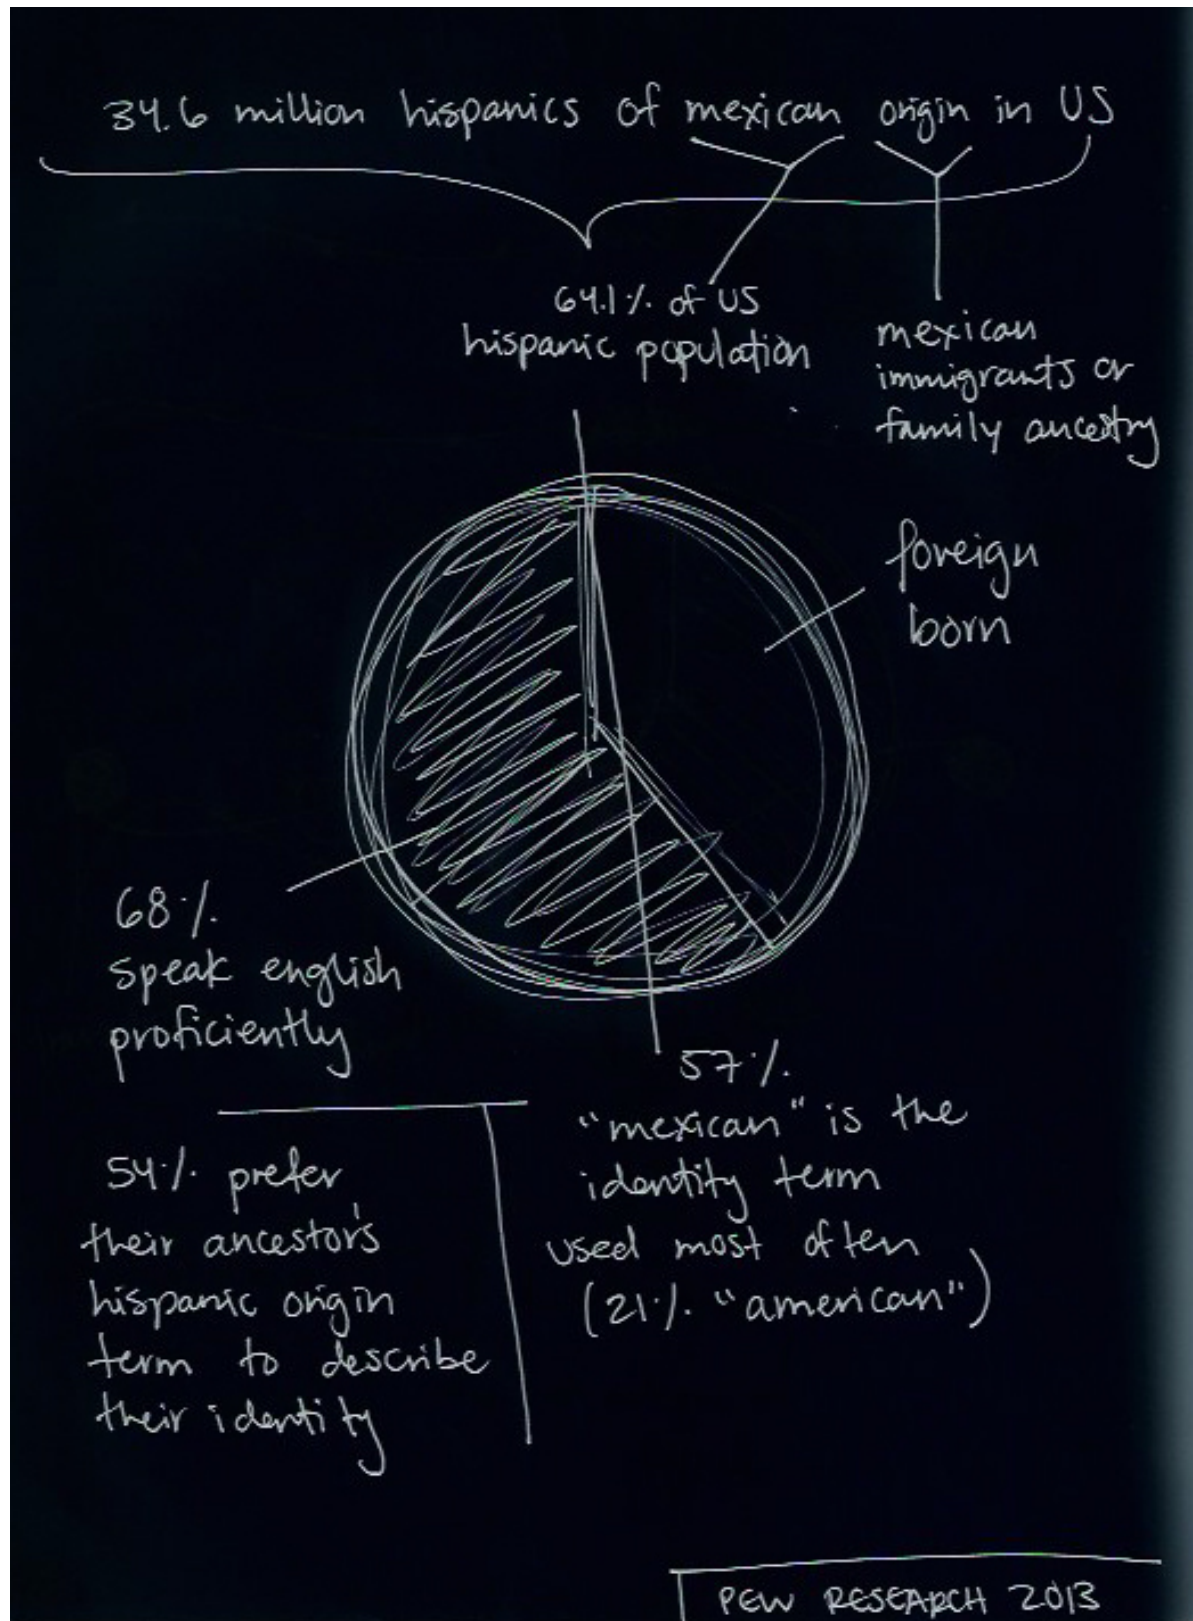 34.6 million hispanics of mexican origin in US
64.1% of US
hispanic population
mexican
immigrants or
family ancestry
foreign
born
68%
speak english
proficiently
57%
"mexican" is the
identity term
used most often
(21% "american")
54% prefer
their ancestor's
hispanic origin
term to describe
their identity
PEW RESEARCH 2013